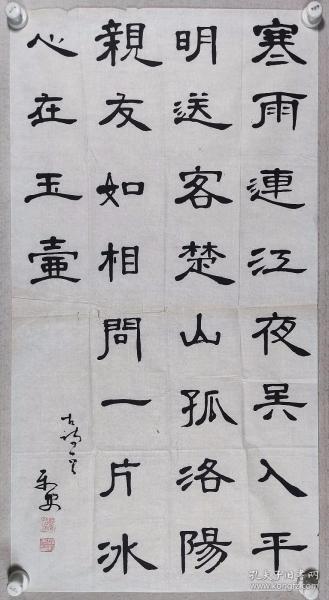 寒雨連江夜吴入平
明送客楚山孤洛陽
親友如相問一片冰
心在玉壷
孔夫子旧书网